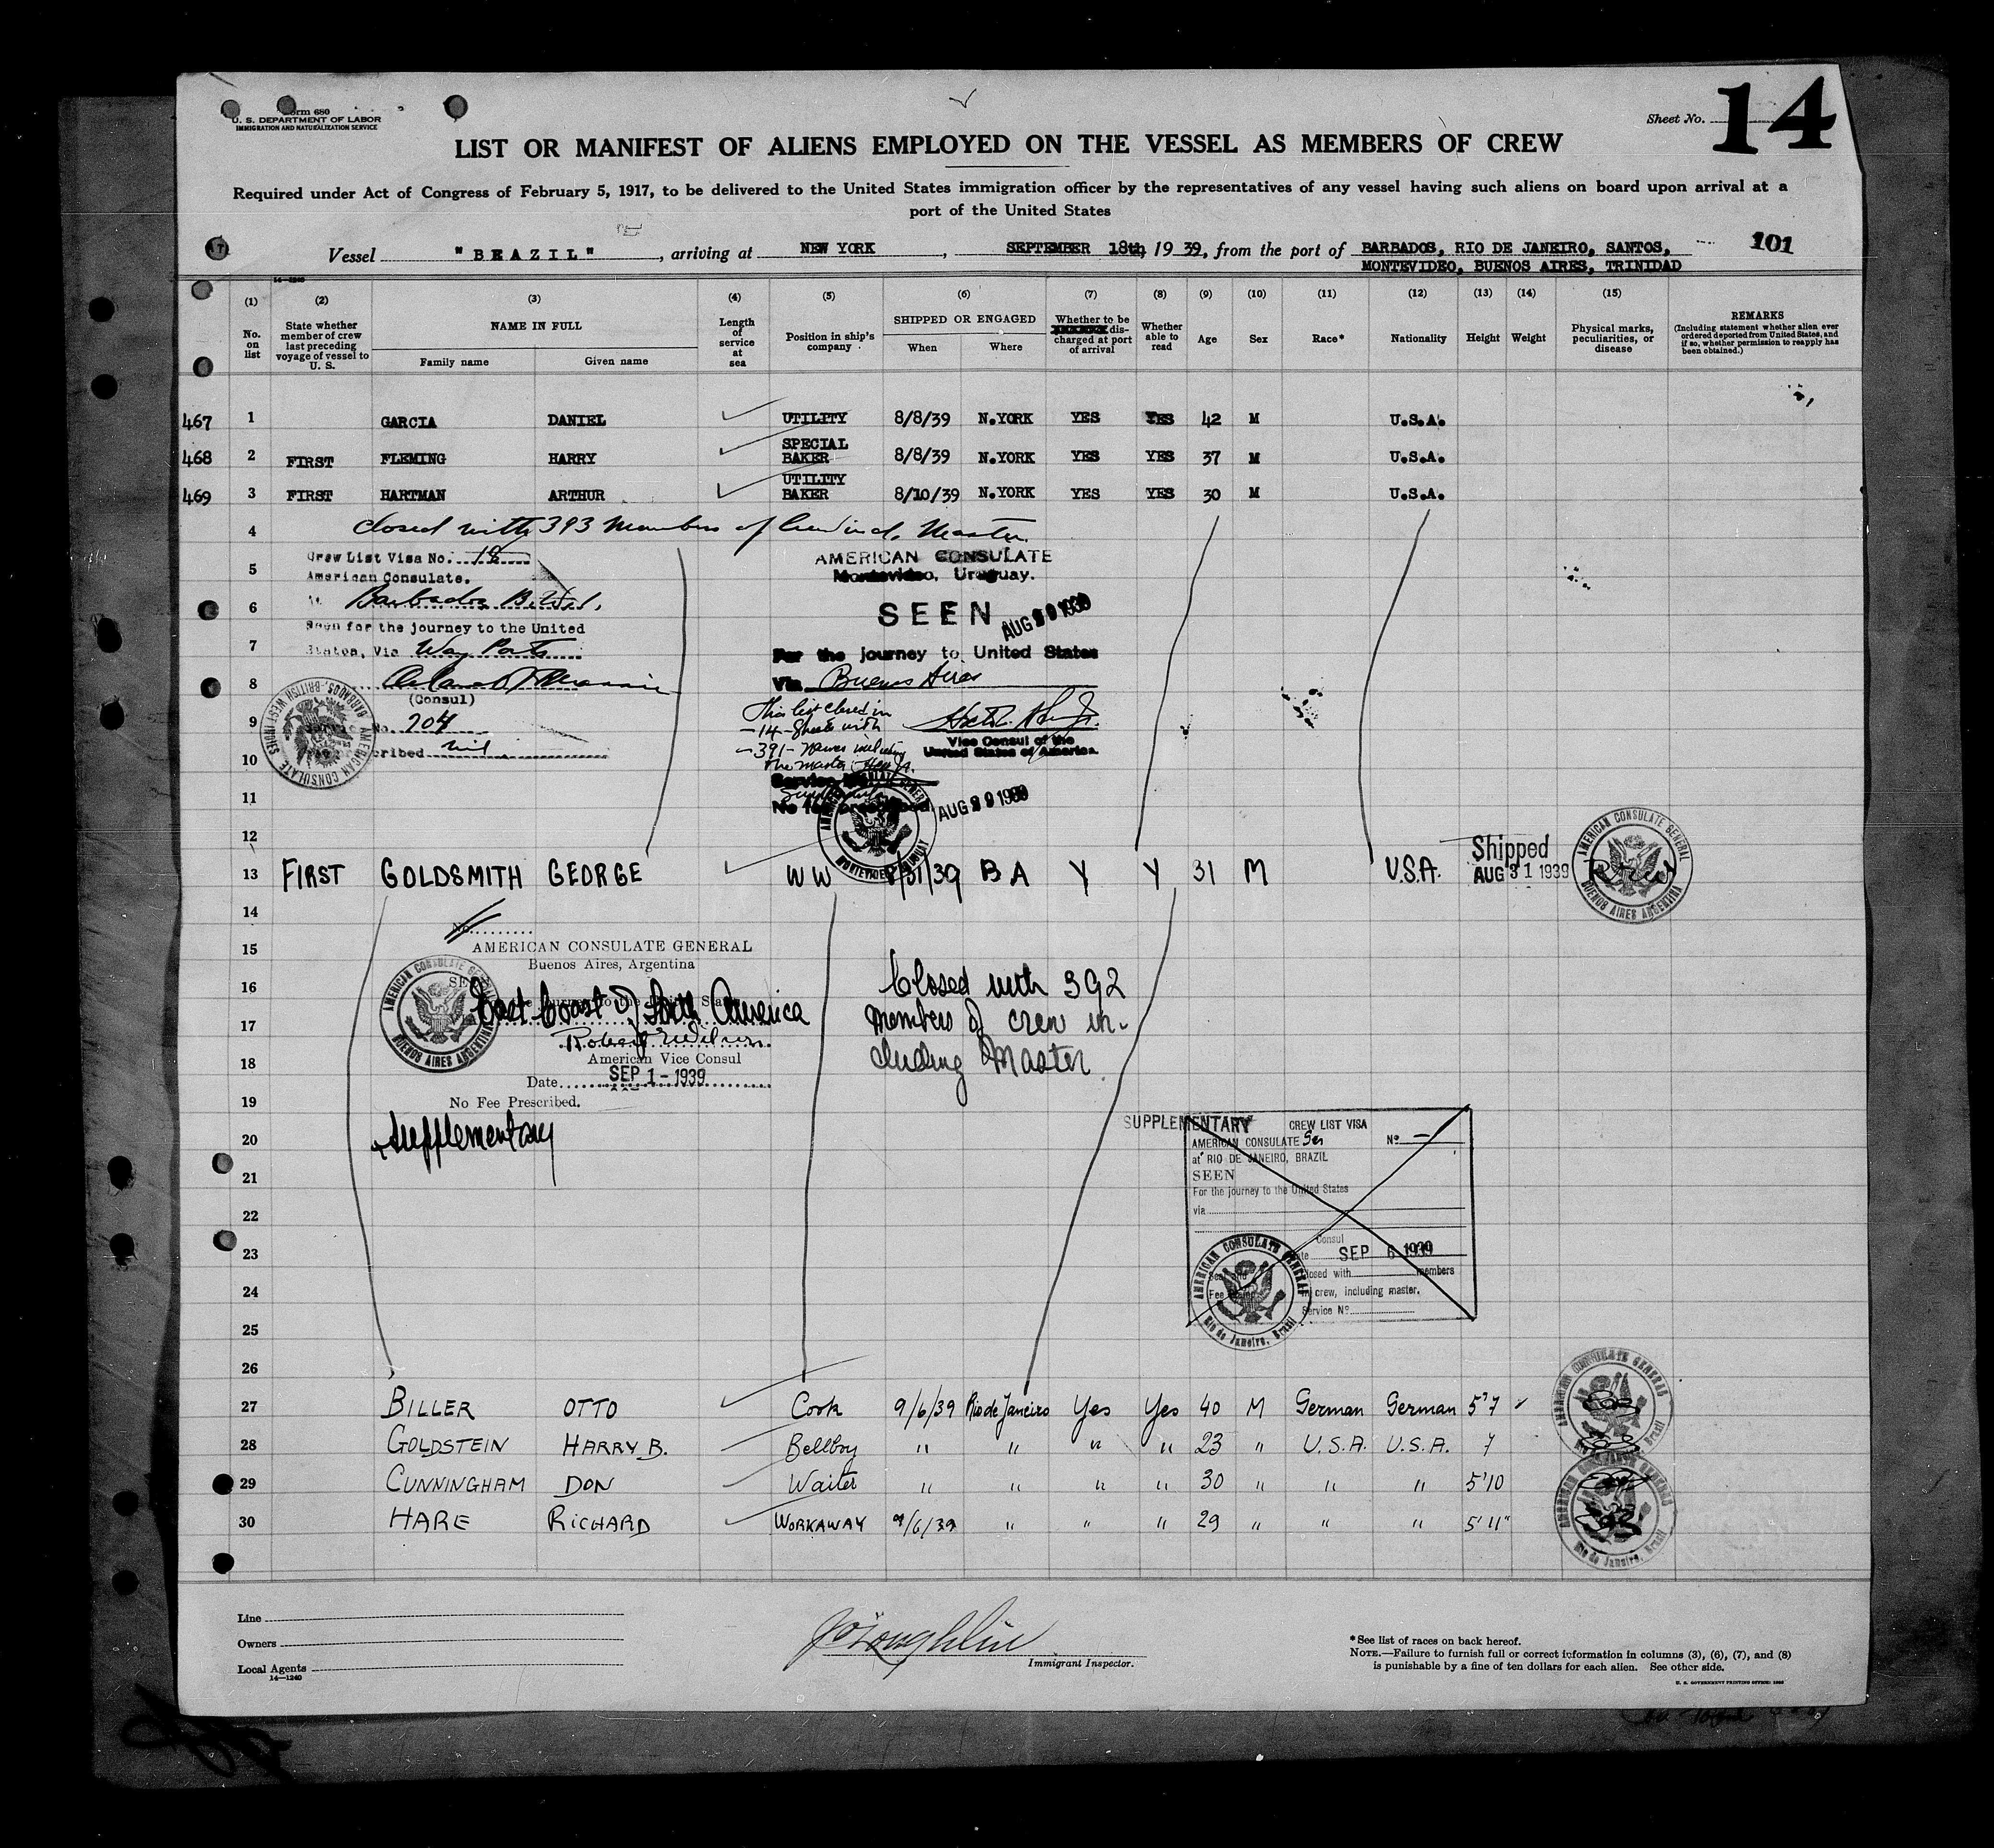 Form 680
U. S. DEPARTMENT OF LABOR
IMMIGRATION AND NATURALIZATION SERVICE
Sheet No. 14
LIST OR MANIFEST OF ALIENS EMPLOYED ON THE VESSEL AS MEMBERS OF CREW
Required under Act of Congress of February 5, 1917, to be delivered to the United States immigration officer by the representatives of any vessel having such aliens on board upon arrival at a
port of the United States
Vessel "BRAZIL", arriving at NEW YORK, SEPTEMBER 18th, 1939, from the port of BARBADOS, RIO DE JANEIRO, SANTOS, 101
MONTEVIDEO, BUENOS AIRES, TRINIDAD
14—1240
(1) (2) (3) (4) (5) (6) (7) (8) (9) (10) (11) (12) (13) (14) (15)
No. on list
State whether member of crew last preceding voyage of vessel to U. S.
NAME IN FULL
Family name Given name
Length of service at sea
Position in ship's company
SHIPPED OR ENGAGED
When Where
Whether to be discharged at port of arrival
Whether able to read
Age
Sex
Race*
Nationality
Height
Weight
Physical marks, peculiarities, or disease
REMARKS
(Including statement whether alien ever ordered deported from United States, and if so, whether permission to reapply has been obtained.)
467 1 GARCIA DANIEL UTILITY 8/8/39 N.YORK YES YES 42 M U.S.A.
468 2 FIRST FLEMING HARRY SPECIAL BAKER 8/8/39 N.YORK YES YES 37 M U.S.A.
469 3 FIRST HARTMAN ARTHUR UTILITY BAKER 8/10/39 N.YORK YES YES 30 M U.S.A.
4 closed with 393 Members of Crew incl. Master
5
6
7
8
9
10
11
12
Crew List Visa No. 18
American Consulate.
Barbados B.W.I.
Seen for the journey to the United
States, Via Way Ports
(Consul)
No. 204
nil
AMERICAN CONSULATE
BARBADOS, BRITISH WEST INDIES
AMERICAN CONSULATE
Montevideo, Uruguay.
SEEN AUG 29 1939
For the journey to United States
Via Buenos Aires
This list closed in
-14- Sheets with
-391- names including
the master
Vice Consul of the
United States of America.
No fee prescribed AUG 29 1939
13 FIRST GOLDSMITH GEORGE WW 8/31/39 BA Y Y 31 M U.S.A. Shipped
AUG 31 1939
AMERICAN CONSULATE GENERAL
BUENOS AIRES ARGENTINA
14
15
16
17
18
19
20
21
22
23
24
25
26
No.
AMERICAN CONSULATE GENERAL
Buenos Aires, Argentina
East Coast of South America
Robert Wilson
American Vice Consul
Date SEP 1 - 1939
No Fee Prescribed.
Supplementary
AMERICAN CONSULATE GENERAL
BUENOS AIRES ARGENTINA
Closed with 392
members of crew in-
cluding Master
SUPPLEMENTARY CREW LIST VISA
AMERICAN CONSULATE Gen No —
at RIO DE JANEIRO, BRAZIL
SEEN
For the journey to the United States
via
Consul
Date SEP 6 1939
Closed with members
in crew, including master.
Service No
AMERICAN CONSULATE GENERAL
Rio de Janeiro, Brazil
27 BILLER OTTO Cook 9/6/39 Rio de Janeiro Yes Yes 40 M German German 5'7
28 GOLDSTEIN HARRY B. Bellboy " " " " 23 " U.S.A. U.S.A. 7
29 CUNNINGHAM DON Waiter " " " " 30 " " " 5'10
30 HARE RICHARD WORKAWAY 9/6/39 " " " 29 " " " 5'11"
Line
Owners
Local Agents
14—1240
Immigrant Inspector.
* See list of races on back hereof.
NOTE.—Failure to furnish full or correct information in columns (3), (6), (7), and (8)
is punishable by a fine of ten dollars for each alien. See other side.
U. S. GOVERNMENT PRINTING OFFICE